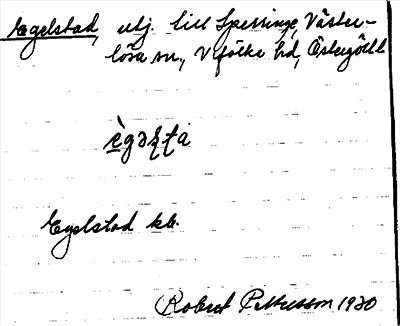 Egelstad, utj. till Spessinge, Väster-
lösa sn., Vifolka hd, Östergötl.
ègəʂʈa
Egelstad kb.
Robert Pettersson 1930